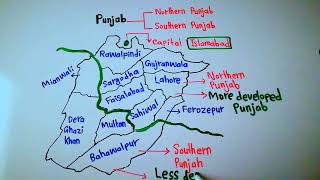 Punjab
Northern Punjab
Southern Punjab
Capital
Islamabad
Rawalpindi
Mianwali
Sargodha
Gujranwala
Lahore
Faisalabad
Northern
Punjab
More developed
Punjab
Sahiwal
Ferozepur
Dera
Ghazi
Khan
Multan
Bahawalpur
Southern
Punjab
Less de